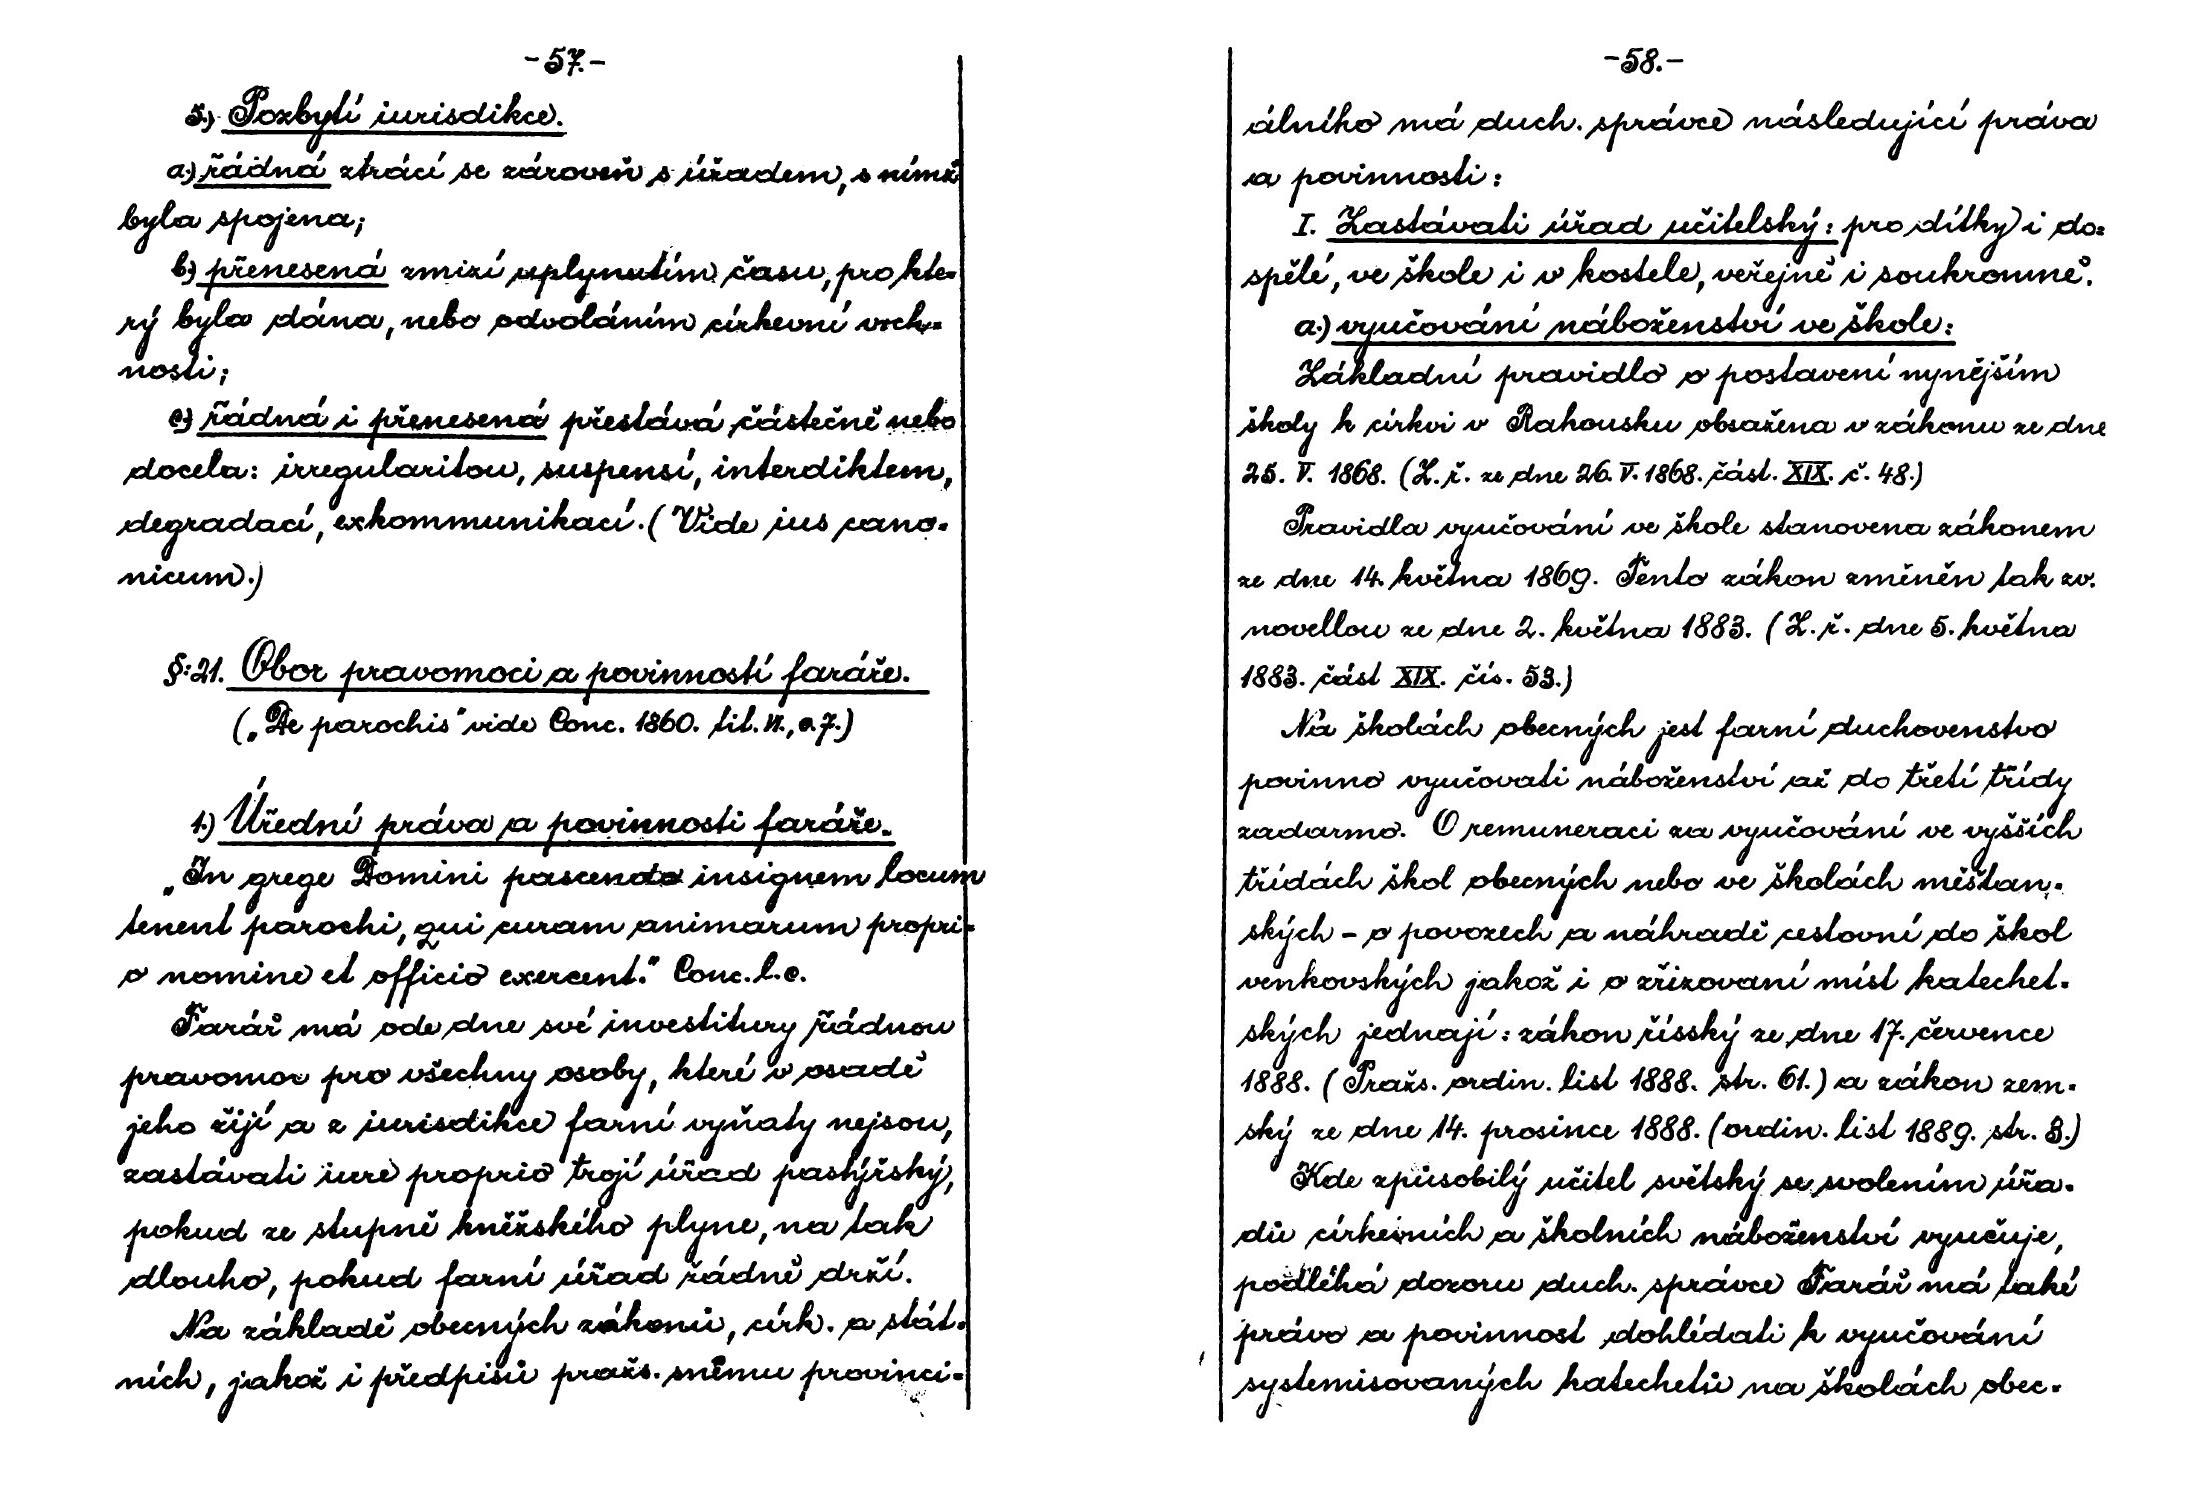 -57.-
5.) Pozbytí iurisdikce.
a.) řádná ztrácí se zároveň s úřadem, s nímž
byla spojena;
b.) přenesená zmizí uplynutím času, pro kte-
rý byla dána, nebo odvoláním církevní vrch-
nosti;
c.) řádná i přenesená přestává částečně nebo
docela: irregularitou, suspensí, interdiktem,
degradací, exkommunikací. (Vide ius cano-
nicum.)
§: 21. Obor pravomoci a povinností faráře.
(„De parochis" vide Conc. 1860. tit. VI., c. 7.)
1.) Úřední práva a povinnosti faráře.
„In grege Domini pascendo insignem locum
tenent parochi, qui curam animarum propri-
o nomine et officio exercent." Conc. l. c.
Farář má ode dne své investitury řádnou
pravomoc pro všechny osoby, které v osadě
jeho žijí a z iurisdikce farní vyňaty nejsou,
zastávati iure proprio trojí úřad pastýřský,
pokud ze stupně kněžského plyne, na tak
dlouho, pokud farní úřad řádně drží.
Na základě obecných zákonů, círk. a stát-
ních, jakož i předpisů pražs. sněmu provinci-
-58.-
álního má duch. správce následující práva
a povinnosti:
I. Zastávati úřad učitelský: pro dítky i do-
spělé, ve škole i v kostele, veřejně i soukromně.
a.) vyučování náboženství ve škole:
Základní pravidlo o postavení nynějším
školy k církvi v Rakousku obsažena v zákonu ze dne
25. V. 1868. (Z. ř. ze dne 26. V. 1868. část. XIX. č. 48.)
Pravidla vyučování ve škole stanovena zákonem
ze dne 14. května 1869. Tento zákon změněn tak zv.
novellou ze dne 2. května 1883. (Z. ř. dne 5. května
1883. část XIX. čís. 53.)
Na školách obecných jest farní duchovenstvo
povinno vyučovati náboženství až do třetí třídy
zadarmo. O remuneraci za vyučování ve vyšších
třídách škol obecných nebo ve školách měšťan-
ských - o povozech a náhradě cestovní do škol
venkovských jakož i o zřizovaní míst katechet-
ských jednají: zákon říšský ze dne 17. července
1888. (Pražs. ordin. list 1888. str. 61.) a zákon zem-
ský ze dne 14. prosince 1888. (ordin. list 1889. str. 8.)
Kde způsobilý učitel světský se svolením úřa-
dů církevních a školních náboženství vyučuje,
podléhá dozoru duch. správce Farář má také
právo a povinnost dohlédati k vyučování
systemisovaných katechetů na školách obec-